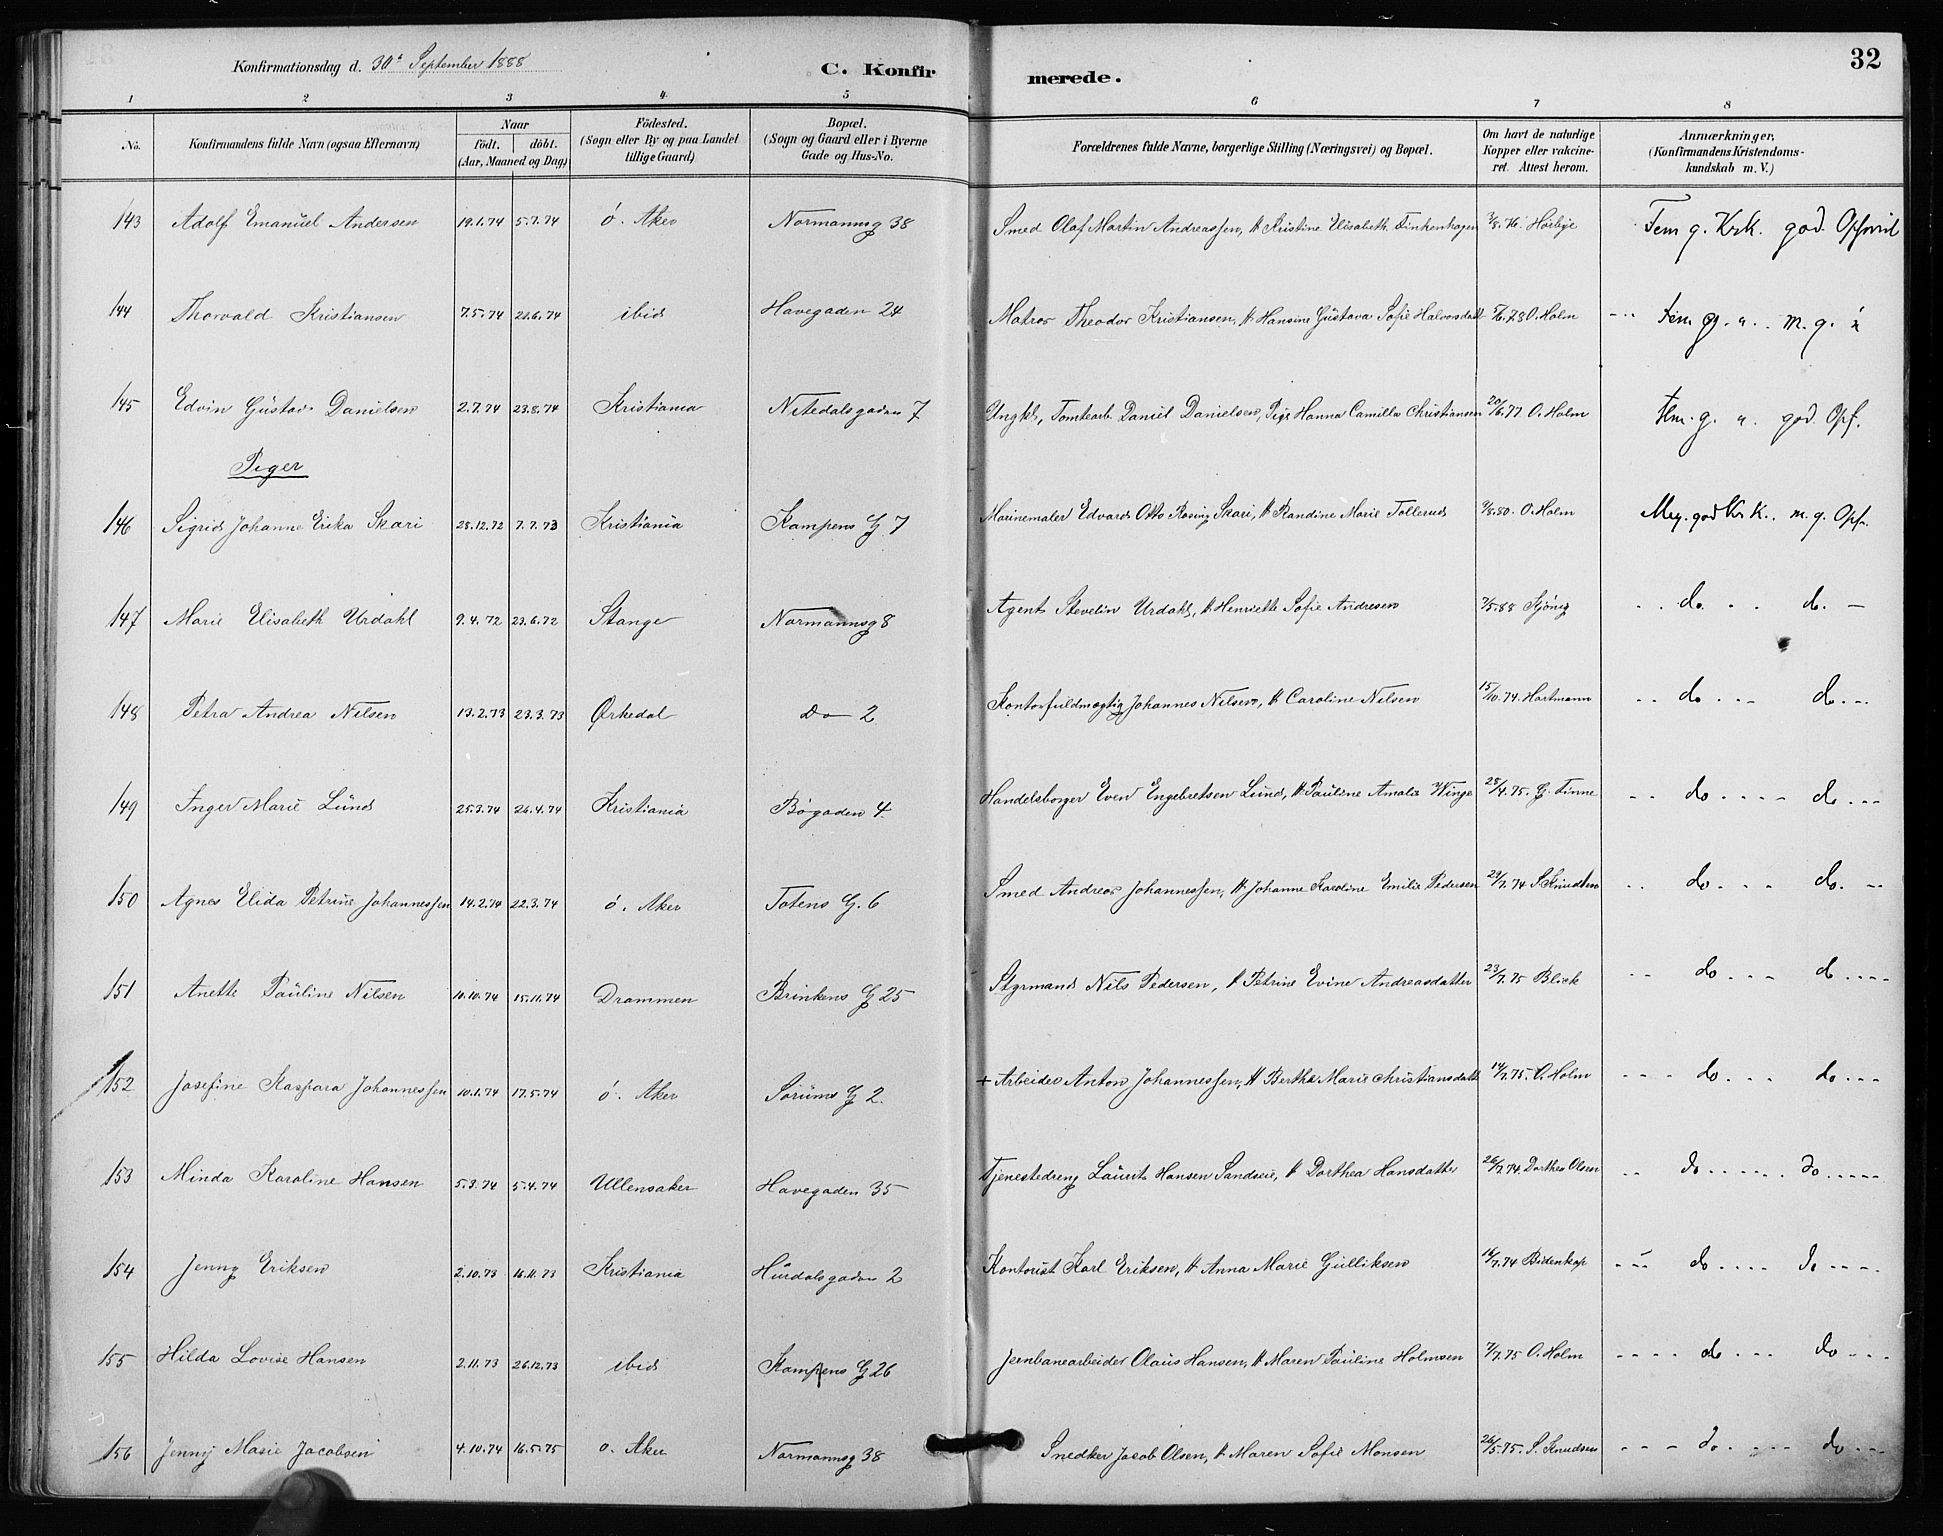 Konfirmationsdag d. 30te September 1888 C. Konfirmerede. 32
1 2 3 4 5 6 7 8
No. Konfirmandens fulde Navn (ogsaa Efternavn) Naar födt. döbt. (Aar, Maaned og Dag) Födested. (Sogn eller By og paa Landet tillige Gaard) Bopæl. (Sogn og Gaard eller i Byerne Gade og Hus-No. Forældrenes fulde Navne, borgerlige Stilling (Næringsvei) og Bopæl. Om havt de naturlige Kopper eller vakcineret. Attest herom. Anmærkninger, (Konfirmandens Kristendomskundskab m. V.)
143 Adolf Emanuel Andersen 19.1.74 5.7.74 ö. Aker Normannsg 38 Smed Olaf Martin Andreassen, H Kristine Elisabeth Finkenhagen Tem g. Krk. god Opf
144 Thorvald Kristiansen 7.5.74 21.6.74 ibid Havegaden 24 Matros Theodor Kristiansen, H Hansine Gustava Sofie Halvorsdatt O. Holm Tem g. " .. m. g. "
145 Edvin Gustav Danielsen 2.7.74 23.8.74 Kristiania Nitedalsgaden 7 Ungkl, Tomtearb. Daniel Danielsen, Pige Hanna Camilla Christiansen 20/6.77 O. Holm Tem. g. " god Opf.
Piger
146 Sigrid Johanne Erika Skari 28.12.72 7.7.73 Kristiania Kampens G 7 Marinemaler Edvard Otto Rosing Skari, H Randine Marie Tollerud 9/8.80. O. Holm Meg. god Krk. m. g. Opf.
147 Marie Elisabeth Urdahl 9.4.72 23.6.72 Stange Normannsg 8 Agent Stevelin Urdahl, H Henriette Sofie Andresen 7/5.88 .. do. .. do. –
148 Petra Andrea Nilsen 13.2.73 23.3.73 Ørkedal Do 2 Kontorfuldmægtig Johannes Nilsen, H Caroline Nilsen 15/10.74. Hartmann .. do ... do...
149 Inger Marie Lund 25.3.74 26.4.74 Kristiania Bøgaden 4 Handelsborger Even Engebretsen Lund, H Pauline Amalie Winge 28/4.75. G. Finne .. do .... do ...
150 Agnes Elida Petrine Johannessen 14.2.74 22.3.74 ö. Aker Totens G. 6 Smed Andreas Johannessen, H Johanne Karoline Emilie Pedersen 24/7.74 S Knudsen .. do ... do. ..
151 Anette Pauline Nilsen 10.10.74 15.11.74 Drammen Brinkens G 25 Styrmand Nils Pedersen, H Petrine Evine Andreasdatter 23/7.75 Blick .. do ... do ....
152 Josefine Kaspara Johannessen 10.1.74 17.5.74 ö. Aker Sørums G 2. + Arbeider Anton Johannessen, H Berthe Marie Christiansdatt 14/7.75. O. Holm ... do ... do ...
153 Minda Karoline Hansen 5.3.74 5.4.74 Ullensaker Havegaden 35 Tjenestedreng Laurits Hansen Sandveie, H Dorthea Hansdatter 26/7.74. Dorthea Olsen .. do ..... do .....
154 Jenny Eriksen 2.10.73 16.11.73 Kristiania Hurdalsgaden 2 Kontorist Karl Eriksen, H Anna Marie Gulliksen 16/7.74 Bidenkap ... do .... do ....
155 Hilda Lovise Hansen 2.11.73 26.12.73 ibid Kampens G 26 Jernbanearbeider Olaus Hansen, H Maren Pauline Holmsen 7/7.75 O. Holm .... do ... do ...
156 Jenny Marie Jacobsen 4.10.74 16.5.75 ö. Aker Normannsg 38 Snedker Jacob Olsen, H Maren Sofie Monsen 26/5.75. S. Knudsen ... do .... do ...